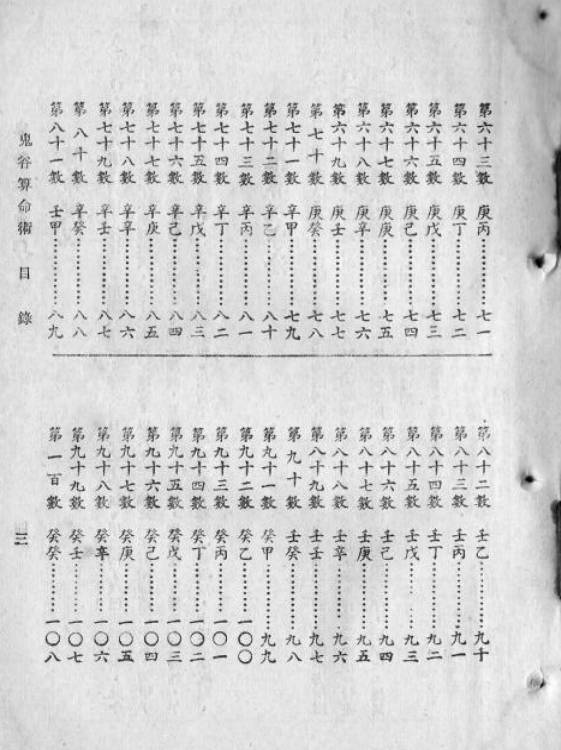 第六十三數　庚丙………七一
第六十四數　庚丁………七二
第六十五數　庚戊………七三
第六十六數　庚己………七四
第六十七數　庚庚………七五
第六十八數　庚辛………七六
第六十九數　庚壬………七七
第七十數　庚癸………七八
第七十一數　辛甲………七九
第七十二數　辛乙………八十
第七十三數　辛丙………八一
第七十四數　辛丁………八二
第七十五數　辛戊………八三
第七十六數　辛己………八四
第七十七數　辛庚………八五
第七十八數　辛辛………八六
第七十九數　辛壬………八七
第八十數　辛癸………八八
第八十一數　壬甲………八九
第八十二數　壬乙………九十
第八十三數　壬丙………九一
第八十四數　壬丁………九二
第八十五數　壬戊………九三
第八十六數　壬己………九四
第八十七數　壬庚………九五
第八十八數　壬辛………九六
第八十九數　壬壬………九七
第九十數　壬癸………九八
第九十一數　癸甲………九九
第九十二數　癸乙………一〇〇
第九十三數　癸丙………一〇一
第九十四數　癸丁………一〇二
第九十五數　癸戊………一〇三
第九十六數　癸己………一〇四
第九十七數　癸庚………一〇五
第九十八數　癸辛………一〇六
第九十九數　癸壬………一〇七
第一百數　癸癸………一〇八
鬼谷算命術　目錄　三